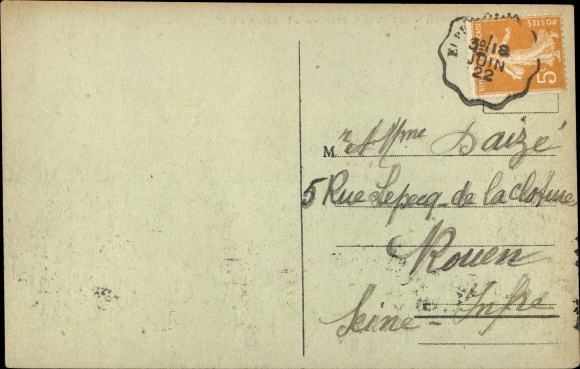 POSTES
5
3º/18
JUIN
22
M. r et Mme Daizé
5 Rue Lepecq de la Cloture
Rouen
Seine-Infre